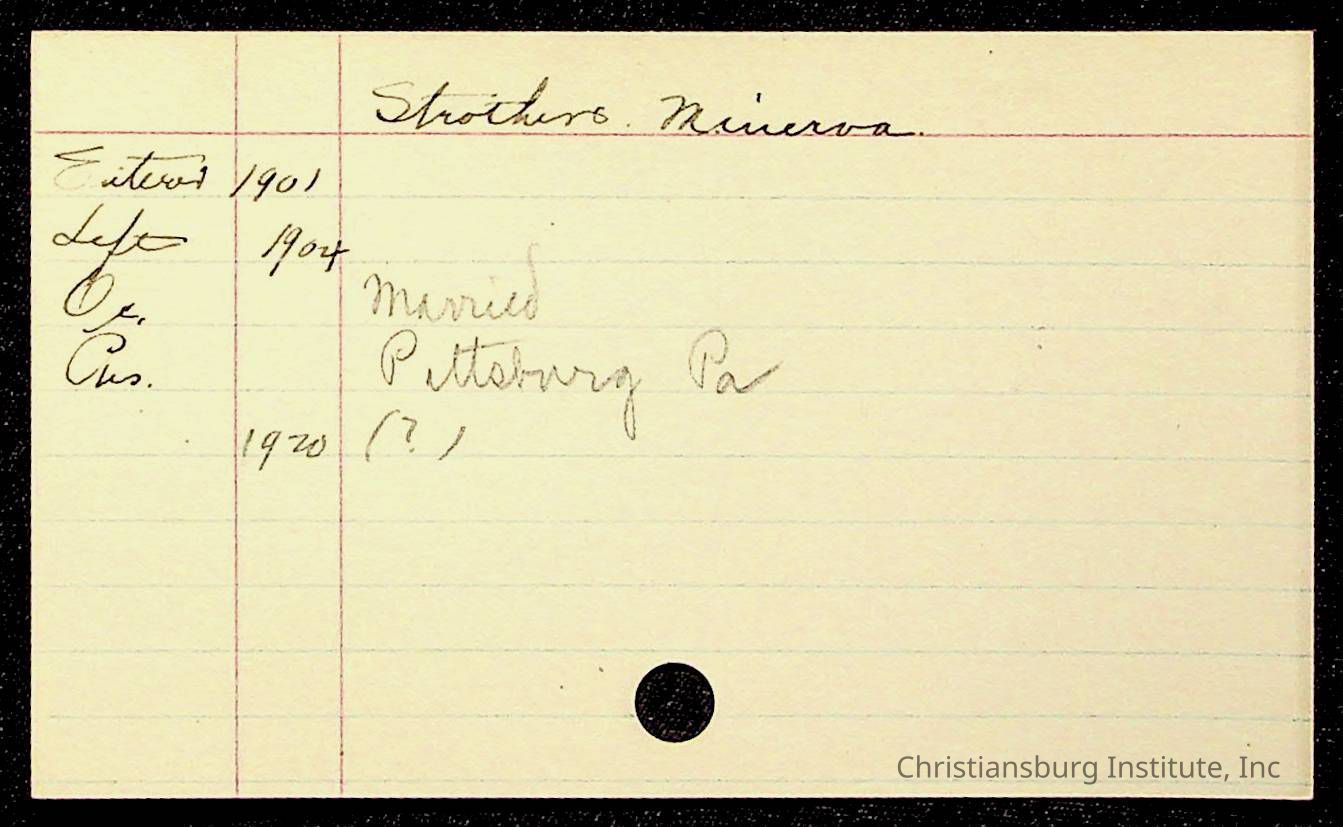 Strothers. Minerva.
Entered 1901
Left 1904
Oc. Married
Pittsburg Pa
1920 (?)
Christiansburg Institute, Inc